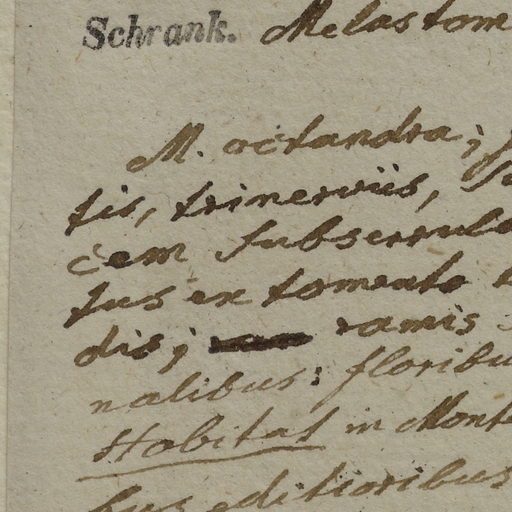 Schrank. Melastom
M. octandra;
tis, trinerviis,
cem subserrula
tus ex tomento
dis; ramis
nalibus: floribu
Habitat in Mont
bus editioribus